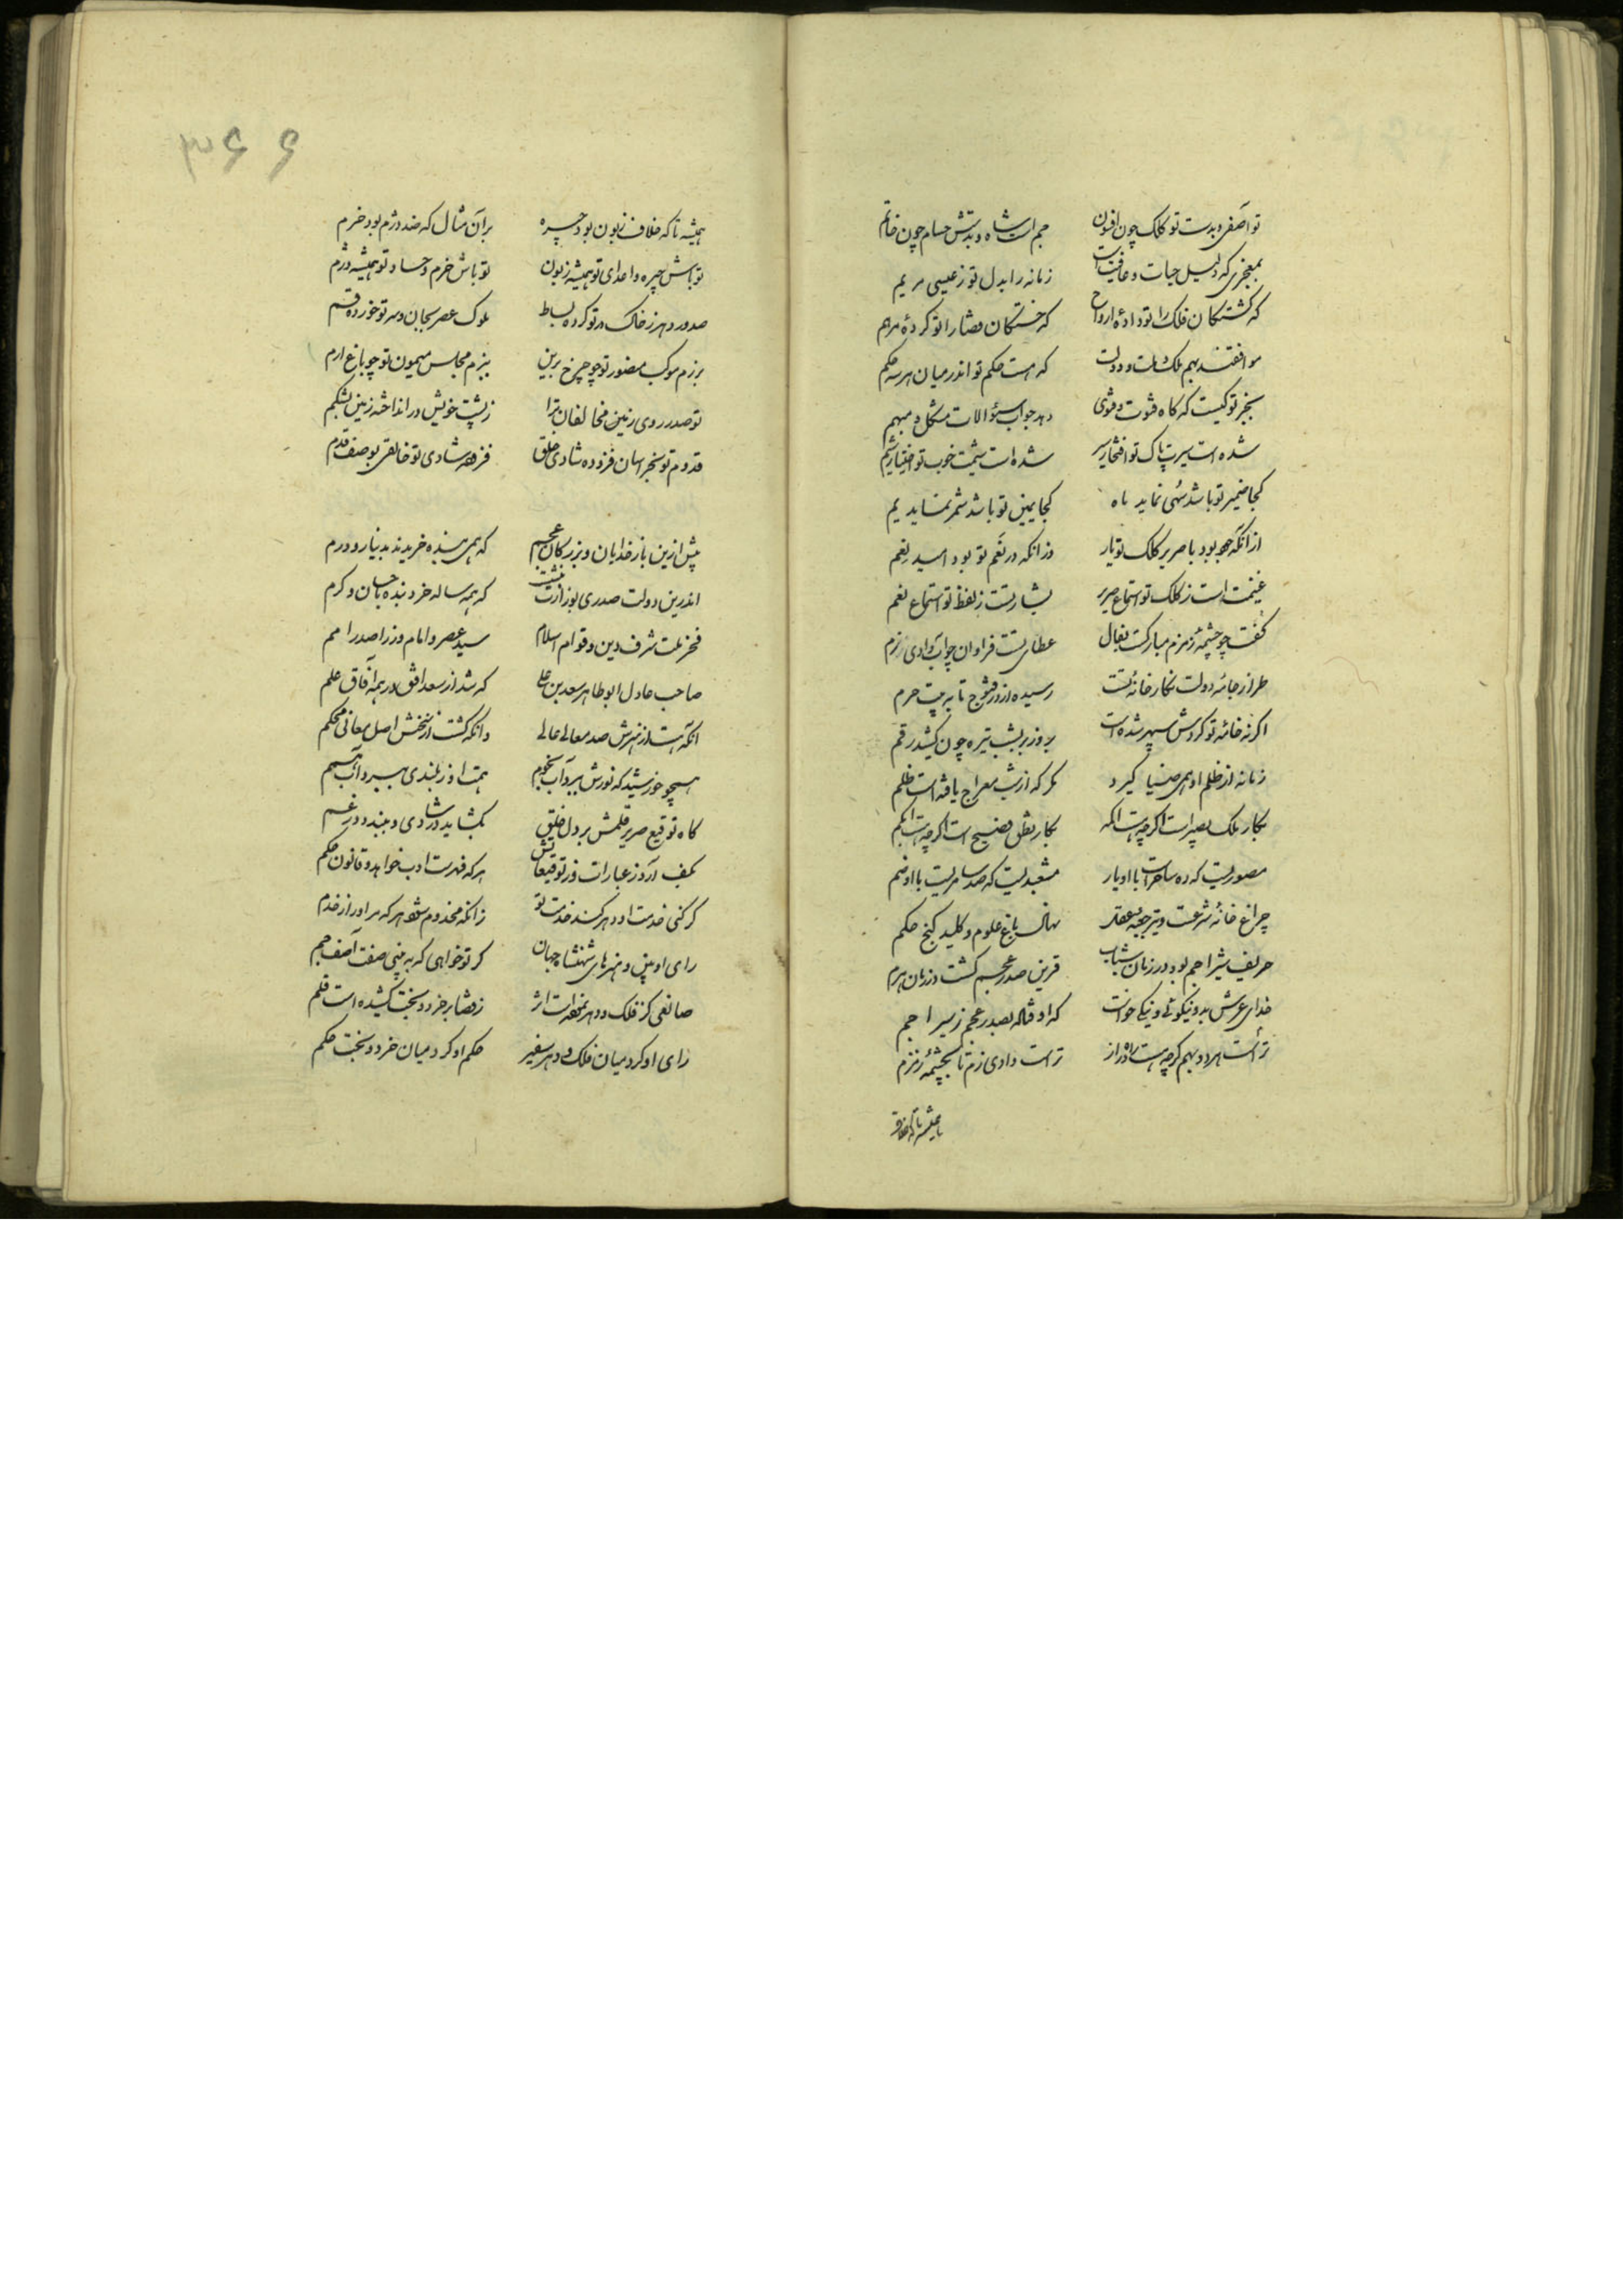 تو آصفی و بدست تو کلک چون افسون جم است شاه و بدستش حسام چون خاتم
بمعجزی که دلیل حیات و عافیت است زمانه را بدل تو ز عیسی مریم
که کشتکان فلک را تو داده ارواح که خستکان قضا را تو کردهٔ مرهم
موافقند بهم ملک و ملت و دولت که هست حکم تو اندر میان هر سه حکم
بجز تو کیست که کاه فتوت و فتوی دهد جواب سؤالات مشکل و مبهم
شده است سیرت پاک تو افتخار سیر شده است شیمت خوب تو اختیار شیم
کجا ضمیر تو باشد سهی نماید ماه کجا یمین تو باشد شمر نماید یم
از آنکه جود بود با صریر کلک تو یار وز آنکه در نعم تو بود امید نعم
غنیمت است ز کلک تو استماع صریر بشارتست ز لفظ تو استماع نعم
کفت چو چشمه زمزم مبارکست بفال عطای تست فراوان چو آب وادی زم
طراز جامه دولت نکار خانهٔ تست رسیده از در قنوج تا به بیت حرم
اکر نه خامه تو کردش سپهر شده است بروز بر بشب تیره چون کشید رقم
زمانه از ظلم او همی ضیا کیرد مکر که از شب معراج یافته است ظلم
بکار ملک بصیر است اکرچه هست اکمه بکار نطق فصیح است اکرچه هست ابکم
مصوریست که ده ساحر است با او یار مشعبدیست که صد سامریست با او ضم
چراغ خانهٔ شرعست و تیر جعبه عقل نهال باغ علوم و کلید کنج حکم
حریف شیر اجم بود در زمان شباب قرین صدر عجم کشت در زمان هرم
خدای عرش بدو نیکوئی و نیکی خواست که اوفتاد بصدر عجم ز شیر اجم
تراست هر دو بهم کرچه هست راه دراز تراست وادی زم تا بچشمهٔ زمزم
همیشه تا که خلاف
۳۶۶
همیشه تا که خلاف زبون بود چیره بر آن مثال که ضد دژم بود خرم
تو باش چیره و اعدای تو همیشه زبون تو باش خرم و حساد تو همیشه دژم
صدور دهر ز خاک در تو کرده بساط ملوک عصر بجان و سر تو خورده قسم
برزم موکب منصور تو چو چرخ برین ببزم مجلس میمون تو چو باغ ارم
تو صدر روی زمین و مخالفان ترا ز پشت خویش در انداخته زمین بشکم
قدوم تو بخراسان فزوده شادی خلق فزوده شادی تو خالقی بوصف قدم
پیش ازین بارخدایان و بزرکان عجم که همی بنده خریدند بدینار و درم
اندرین دولت صدری بوزارت بنشست که همه ساله خرد بنده باحسان و کرم
فخر ملت شرف دین و قوام اسلام سید عصر و امام وزرا صدر امم
صاحب عادل ابو طاهر سعد بن علی که شد از سعد افق در همه آفاق علم
آنکه هست از هنرش صدر معالی عالی وانکه کشت از سخنش اصل معانی محکم
همچو خورشید که نورش ببرد آب نجوم همت او ز بلندی ببرد آب همم
کاه توقیع صریر قلمش بر دل خلق بکشاید در شادی و ببندد در غم
بکف آرد ز عبارات وز توقیعاتش هر که فهرست ادب خواهد و قانون حکم
کر کنی خدمت او دهر کند خدمت تو زانکه مخدوم شود هر که مر او را ز خدم
رای او بین و هنرهای شهنشاه جهان کر تو خواهی که ببینی صفت آصف جم
صانعی کز فلک و دهر نمودست اثر ز قضا بر خرد و بخت کشیده است قلم
رای او کرد میان فلک و دهر سفیر حکم او کرد میان خرد و بخت حکم